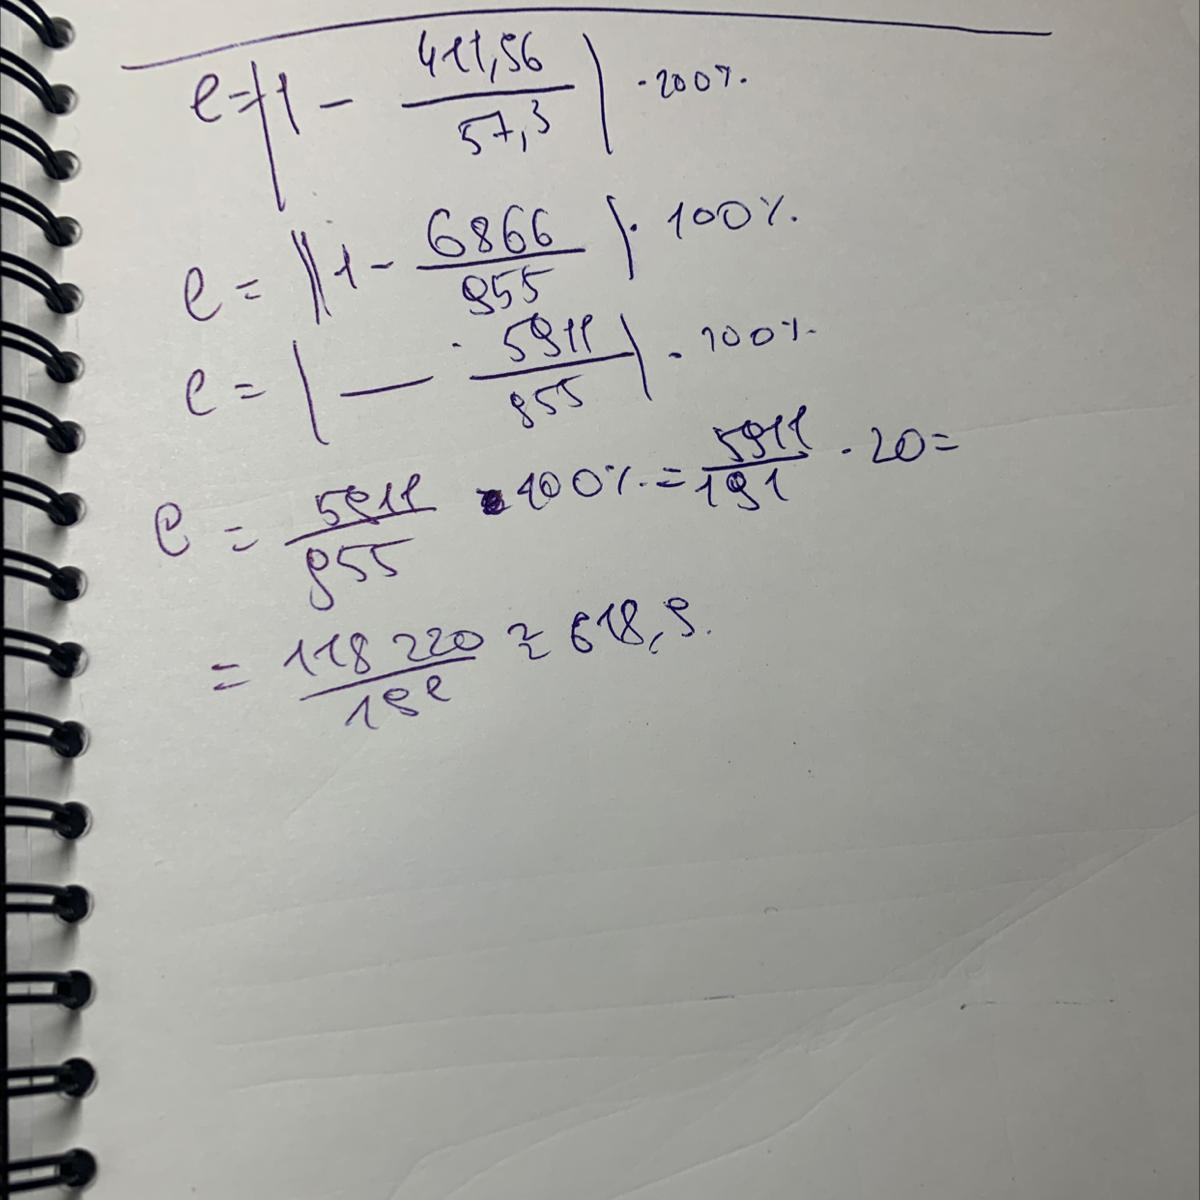 e = |1 - 411,96/57,3| · 100%.
e = |1 - 6866/955| · 100%.
e = | - 5911/955| · 100%.
e = 5911/955 · 100%. = 5911/191 · 20 =
= 118 220/191 ≈ 618,9.